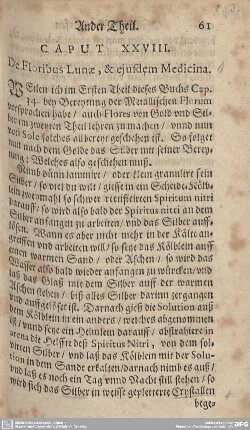 Ander Theil. 61
CAPUT XXVIII.
De Floribus Lunæ, & ejusdem Medicina.
Weilen ich im Ersten Theil dieses Buchs Cap.
14. bey Bereytung der Metallischen Florum
versprochen habe / auch Flores von Gold und Sil-
ber im zweyten Theil lehren zu machen / unnd nun
von Solo solches allbereit geschehen ist. So folget
nun nach dem Golde das Silber mit seiner Berey-
tung; Welches also geschehen muß.
Nimb dünn laminirt / oder klein granulirt fein
Silber / so viel du wilt / giesse in ein Scheide-Kölb-
lein zweymahl so schwer rectificirten Spiritum nitri
darauff / so wird also bald der Spiritus nitri an dem
Silber anfangen zu arbeiten / und das Silber auff-
lösen. Wann es aber nicht mehr in der Kälte an-
greiffen und arbeiten will / so setze das Kölblein auff
einen warmen Sand / oder Aschen / so wird das
Wasser also bald wieder anfangen zu würcken / und
laß das Glaß mit dem Silber auff der warmen
Aschen stehen / biß alles Silber darinn zergangen
und auffgelöset ist. Darnach gieß die Solution auß
dem Kölblein in ein anders / welches abgenommen
ist / unnd setze ein Helmlein darauff / abstrahire in
arena die Helffte deß Spiritus Nitri, von dem sol-
virten Silber / und laß das Kölblein mit der Solu-
tion im dem Sande erkalten / darnach nimb es auß /
und laß es noch ein Tag unnd Nacht still stehen / so
wird sich das Silber in weisse gepletterte Crystallen
bege-